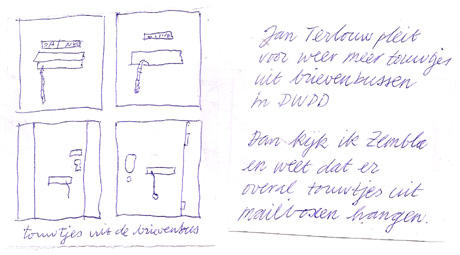 JA NEE
touwtjes uit de brievenbus
Jan Terlouw pleit
voor weer meer touwtjes
uit brievenbussen
in DWDD
Dan kijk ik Zembla
en weet dat er
overal touwtjes uit
mailboxen hangen.